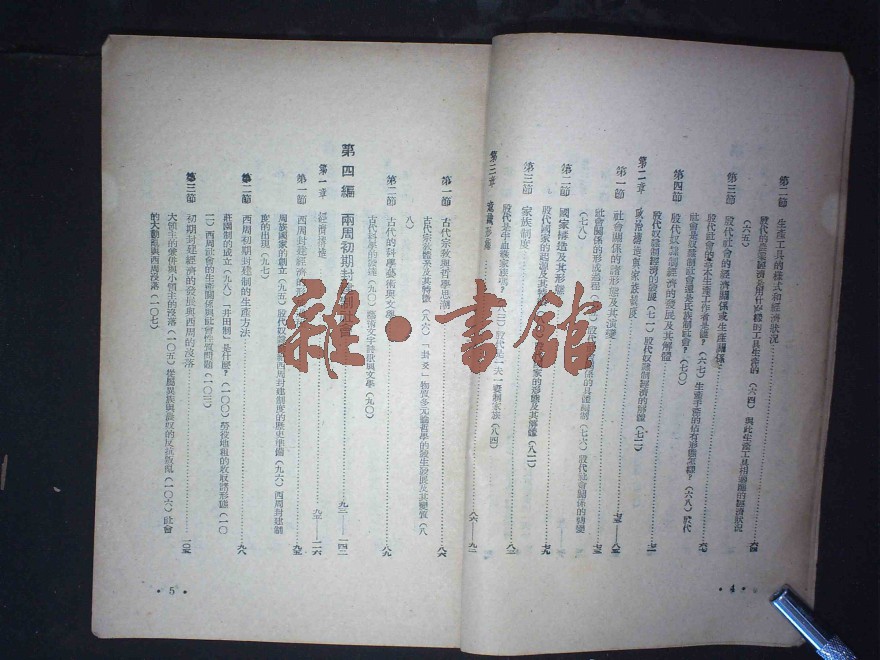 第二節 生產工具的樣式和經濟狀況………六四
殷代的產業經濟是用什麼樣的工具生產的（六四） 與此生產工具相適應的經濟狀況
（六五）
第三節 殷代社會的經濟關係或生產關係………六七
殷代社會的基本生產工作者是誰？（六七）生產手段的佔有形態怎樣？（六八）殷代
社會是奴隸制社會還是氏族制社會？（七〇）
第四節 殷代奴隸制經濟的發展及其解體………七一
殷代奴隸制經濟的發展（七一）殷代奴隸制經濟的解體（七二）
第二章 政治構造與家族制度………七五——八五
第一節 社會關係的諸形態及其演變………七五
社會關係的形成過程 殷代 關係的具體編制（七六）殷代社會關係的轉變
（七八）
第二節 國家構造及其形態………七九
殷代國家的起源及其 家的形態及其解體（八二）
第三節 家族制度………八三
殷代是否血族家族嗎？（八三）殷代是一夫一妻制家族（八四）
第三章 意識形態………八六——九二
4
第一節 古代宗教與哲學思潮………八六
古代宗教體系及其特徵（八六）「卦爻」物質多元論哲學的發生發展及其變質（八
八）
第二節 古代的科學藝術與文學………八九
古代科學的發達（九〇）藝術文字詩歌與文學（九〇）
第四編 兩周初期封建制社會………九三——一四二
第一章 經濟構造………九五——一二六
第一節 西周封建經濟的形成………九五
周族國家的創立（九五）殷代奴隸 西周封建制度的歷史準備（九六）西周封建制
度的出現（九七）
第二節 西周初期封建制的生產方法………九八
莊園制的成立（九八）「井田制」是什麼？（一〇〇）勞役地租的收取諸形態（一〇
一）西周社會的生產關係與社會性質問題（一〇三）
第三節 初期封建經濟的發展與西周的沒落………一〇五
大領主的兼併與小領主的沒落（一〇五）從屬異族與農奴的反抗叛亂（一〇六）社會
的大動亂與西周沒落（一〇七）
5
雜·書館